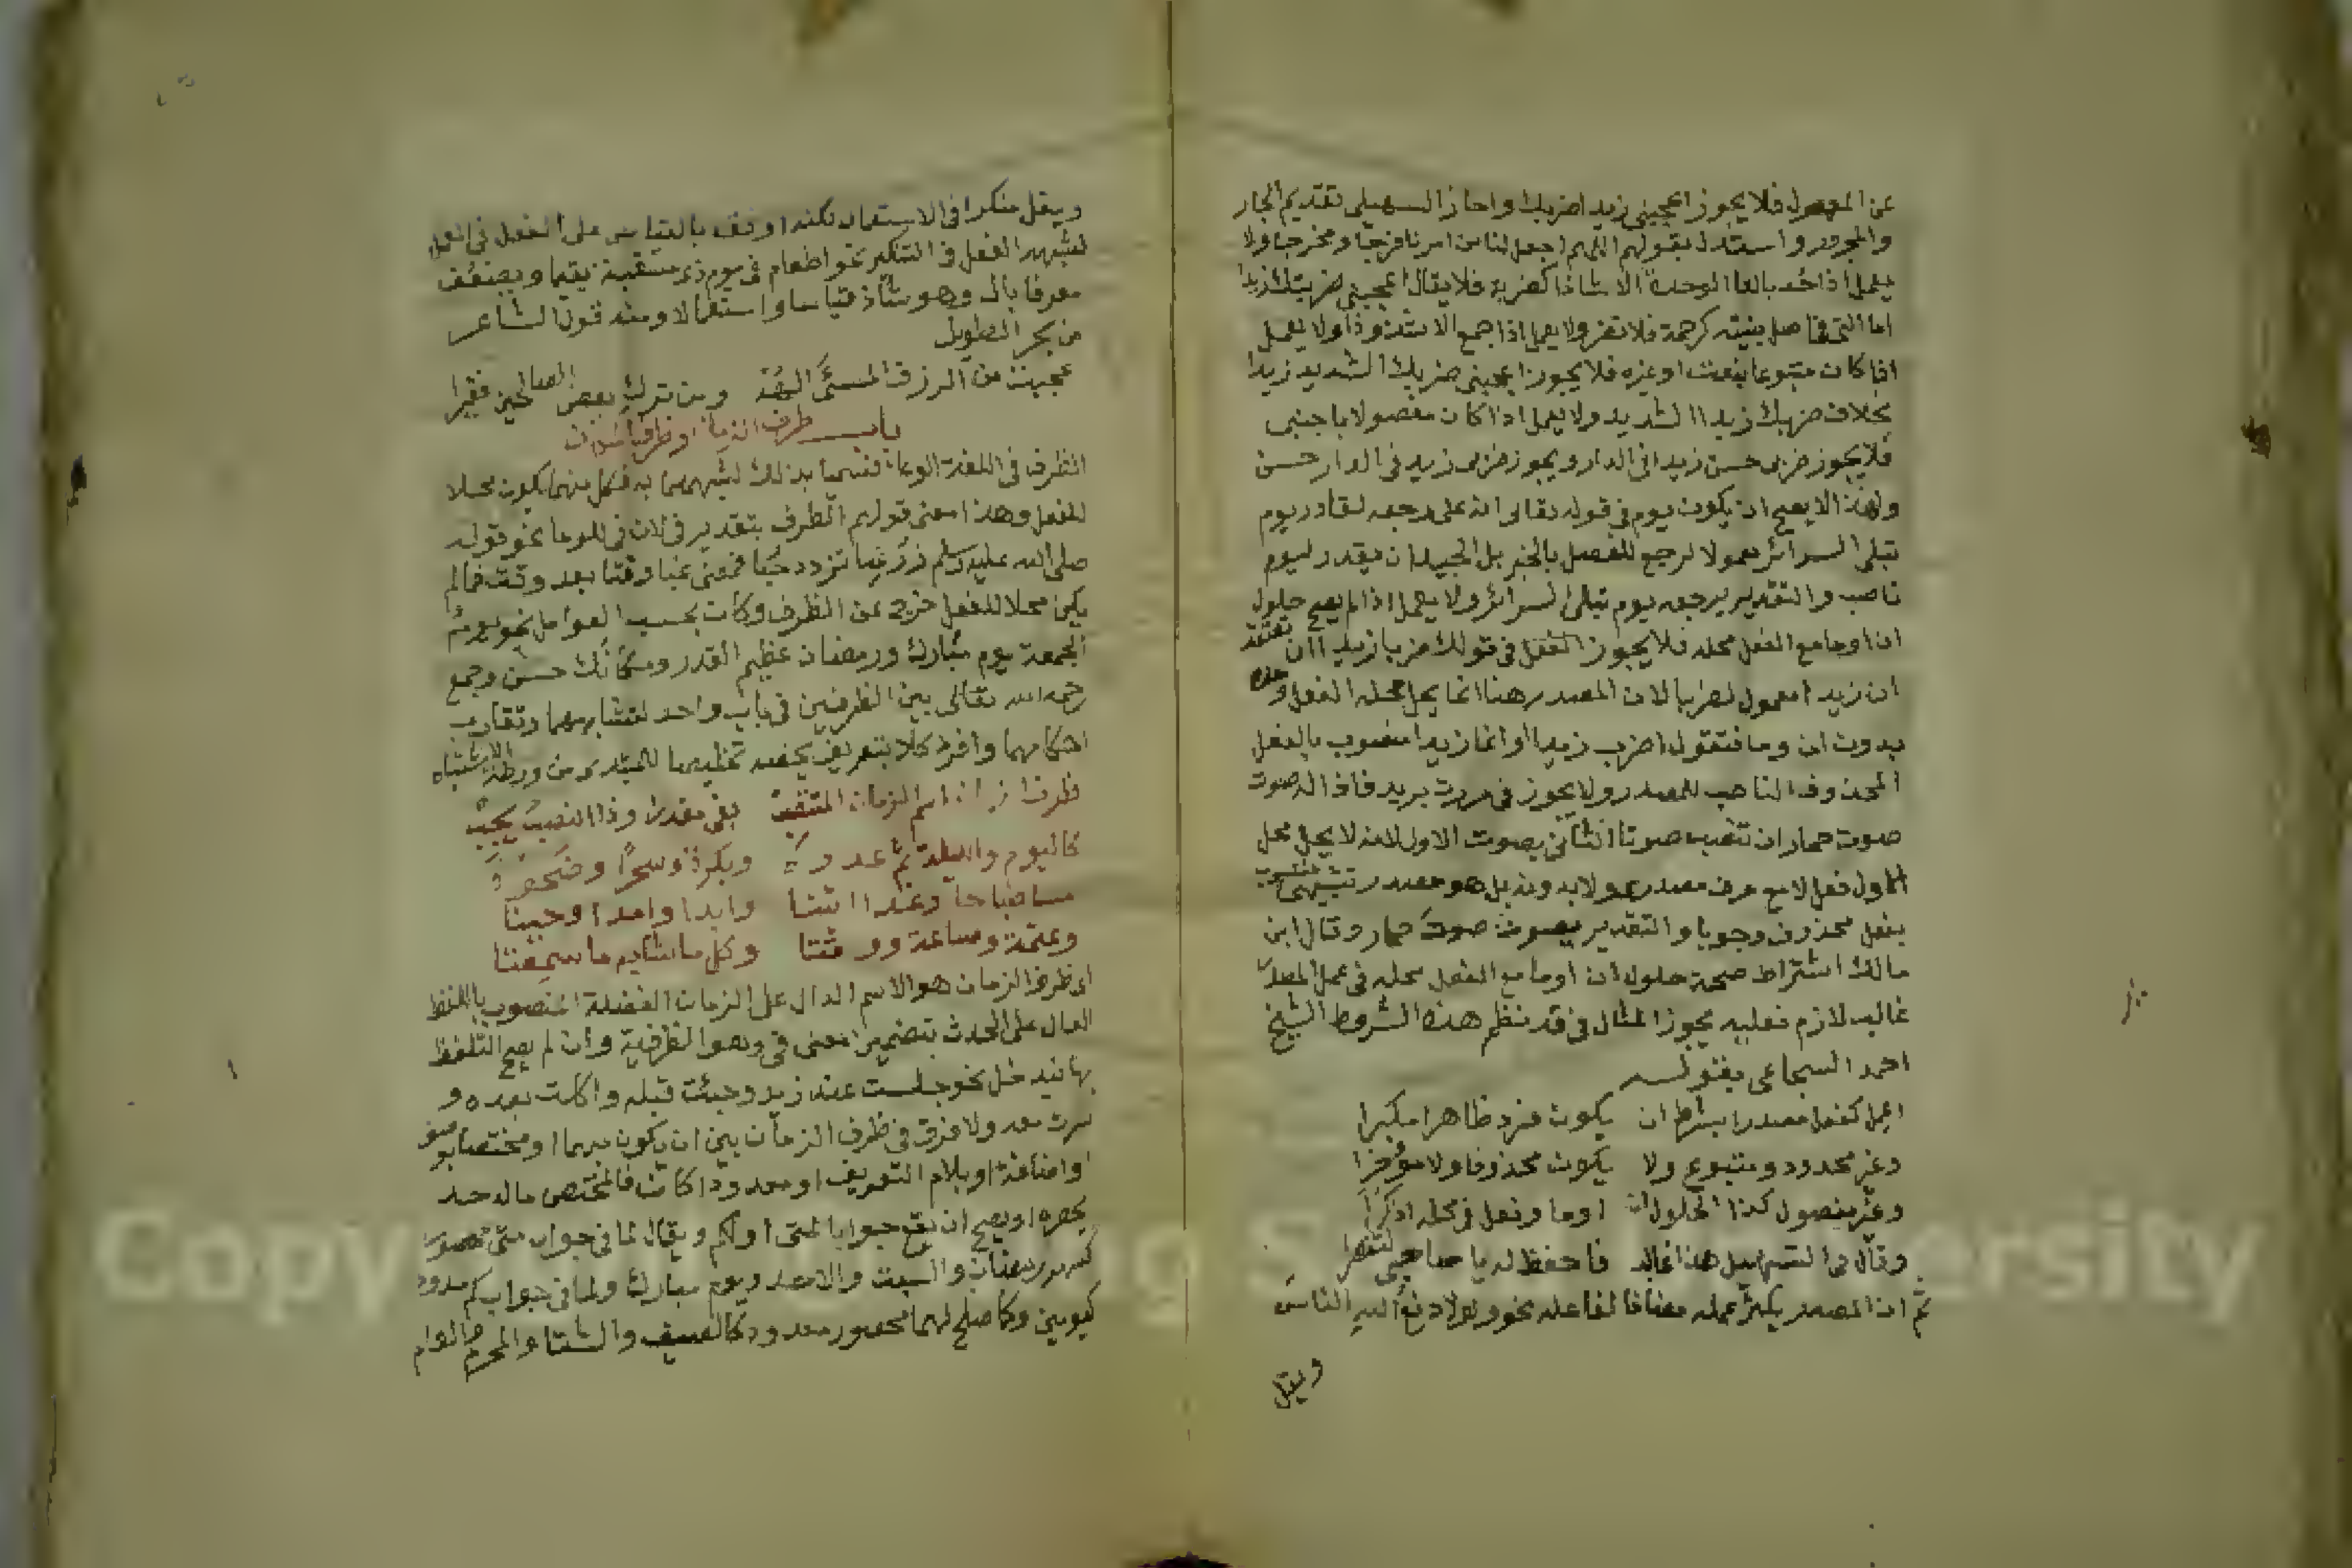 عن المعمول فلا يجوز اعجبني زيدا ضربك واجاز السهيلي تقديم الجار
والمجرور واستدل بقولهم اللهم اجعل لنا من امرنا فرجا ومخرجا ولا
يعمل اذا حد بالتا الوحدة الا شاذا كضربة فلا يقال اعجبني ضربتك زيدا
اما التي في اصل بنيته كرحمة فلا تضر ولا يعمل اذا جمع الا شذوذا ولا يعمل
اذا كان متبوعا بنعت او غيره فلا يجوز اعجبني ضربك الشديد زيدا
بخلاف ضربك زيدا الشديد ولا يعمل اذا كان مفصولا باجنبي
فلا يجوز ضربي حسن زيدا في الدار ويجوز ضربي زيد في الدار حسن
ولهذا لا يصح ان يكون يوم في قوله تعالى انه على رجعه لقادر يوم
تبلى السرائر معمولا لرجع للفصل بالخبر بل الجيد ان يقدر ليوم
ناصب والتقدير يرجعه يوم تبلى السرائر ولا يعمل اذا لم يصح حلول
ان او ما مع الفعل محله فلا يجوز في قولك ضربا زيدا ان تعتقد
ان زيدا معمول لضربا لان المصدر هنا انما يحل محله الفعل وحده
بدون ان وما فتقول اضرب زيدا وانما زيدا منصوب بالفعل
المحذوف الناصب للمصدر ولا يجوز في مررت بزيد فاذا له صوت
صوت حمار ان تنصب صوتا الثاني بصوت الاول لانه لا يحل محل
الاول فعل لا مع حرف مصدري ولا بدونه بل هو مصدر تشبيهي منصوب
بفعل محذوف وجوبا والتقدير يصوت صوت حمار وقال ابن
مالك اشتراط صحة حلول ان او ما مع الفعل محله في عمل المصدر
غالب لازم فعليه يجوز المثال وقد نظم هذه الشروط الشيخ
احمد السجاعي بقوله
اعمل كفعل مصدرا بشرط ان يكون فرد ظاهرا مكبرا
وغير محدود ومتبوع ولا يكون محذوفا ولا مؤخرا
وغير مفصول كذا الحلول ان او ما وفعل في محله اذكرا
وقال في التسهيل هذا غالب فاحفظ له يا صاحبي لتظفرا
ثم ان المصدر يكثر عمله مضافا لفاعله نحو ولولا دفع الله الناس
ويقل
ويقل منكرا في الاستعمال لكنه اوفق بالقياس على الفعل في العمل
لشبهه الفعل في التنكير نحو اطعام في يوم ذي مسغبة يتيما ويضعف
معرفا بال وهو شاذ قياسا واستعمالا ومنه قول الشاعر
من بحر الطويل
عجبت من الرزق المسئ الهه ومن ترك بعض الصالحين فقيرا
باب ظرف الزمان وظرف المكان
الظرف في اللغة الوعاء فسميا بذلك لشبههما به فكل منهما يكون محلا
للفعل وهذا معنى قولهم الظرف بتقدير في لان في للوعا نحو قوله
صلى الله عليه وسلم زر غبا تزدد حبا فمعنى غبا وقتا بعد وقت فما لم
يكن محلا للفعل خرج عن الظرف وكان بحسب العوامل نحو يوم
الجمعة يوم مبارك ورمضان عظيم القدر ومكانك حسن وجمع
رحمه الله تعالى بين الظرفين في باب واحد لتشابههما وتقارب
احكامهما وافرد كلا بتعريف يخصه تخليصا للمبتدي من ورطة الاشتباه
ظرف زمان اسم الزمان المنتصب بفي مقدرا وذا النصب يجب
كاليوم والليلة ثم غدوة وبكرة وسحرا وضحوة
مسا صباحا وغدا اثنا وابدا وامدا وحينا
وعتمة وساعة ووقتا وكل ما شابه ما سمعتا
اي ظرف الزمان هو الاسم الدال على الزمان الفضلة المنصوب باللفظ
الدال على الحدث بتضمير معنى في وهو الظرفية وان لم يصح التلفظ
بها فيدخل نحو جلست عند زيد وجئت قبله واكلت بعده و
سرت معه ولا فرق في ظرف الزمان بين ان يكون مبهما او مختصا بوصف
او اضافة او بلام التعريف او معدودا كان فالمختص ما له حد
يحصره او يصح ان يقع جوابا لمتى او لكم ويقال لما في جواب متى محصور
كشهر رمضان والسبت والاحد ويوم مبارك ولما في جواب كم معدود
كيومين وكما صلح لهما محصور معدود كالصيف والشتا والمحرم